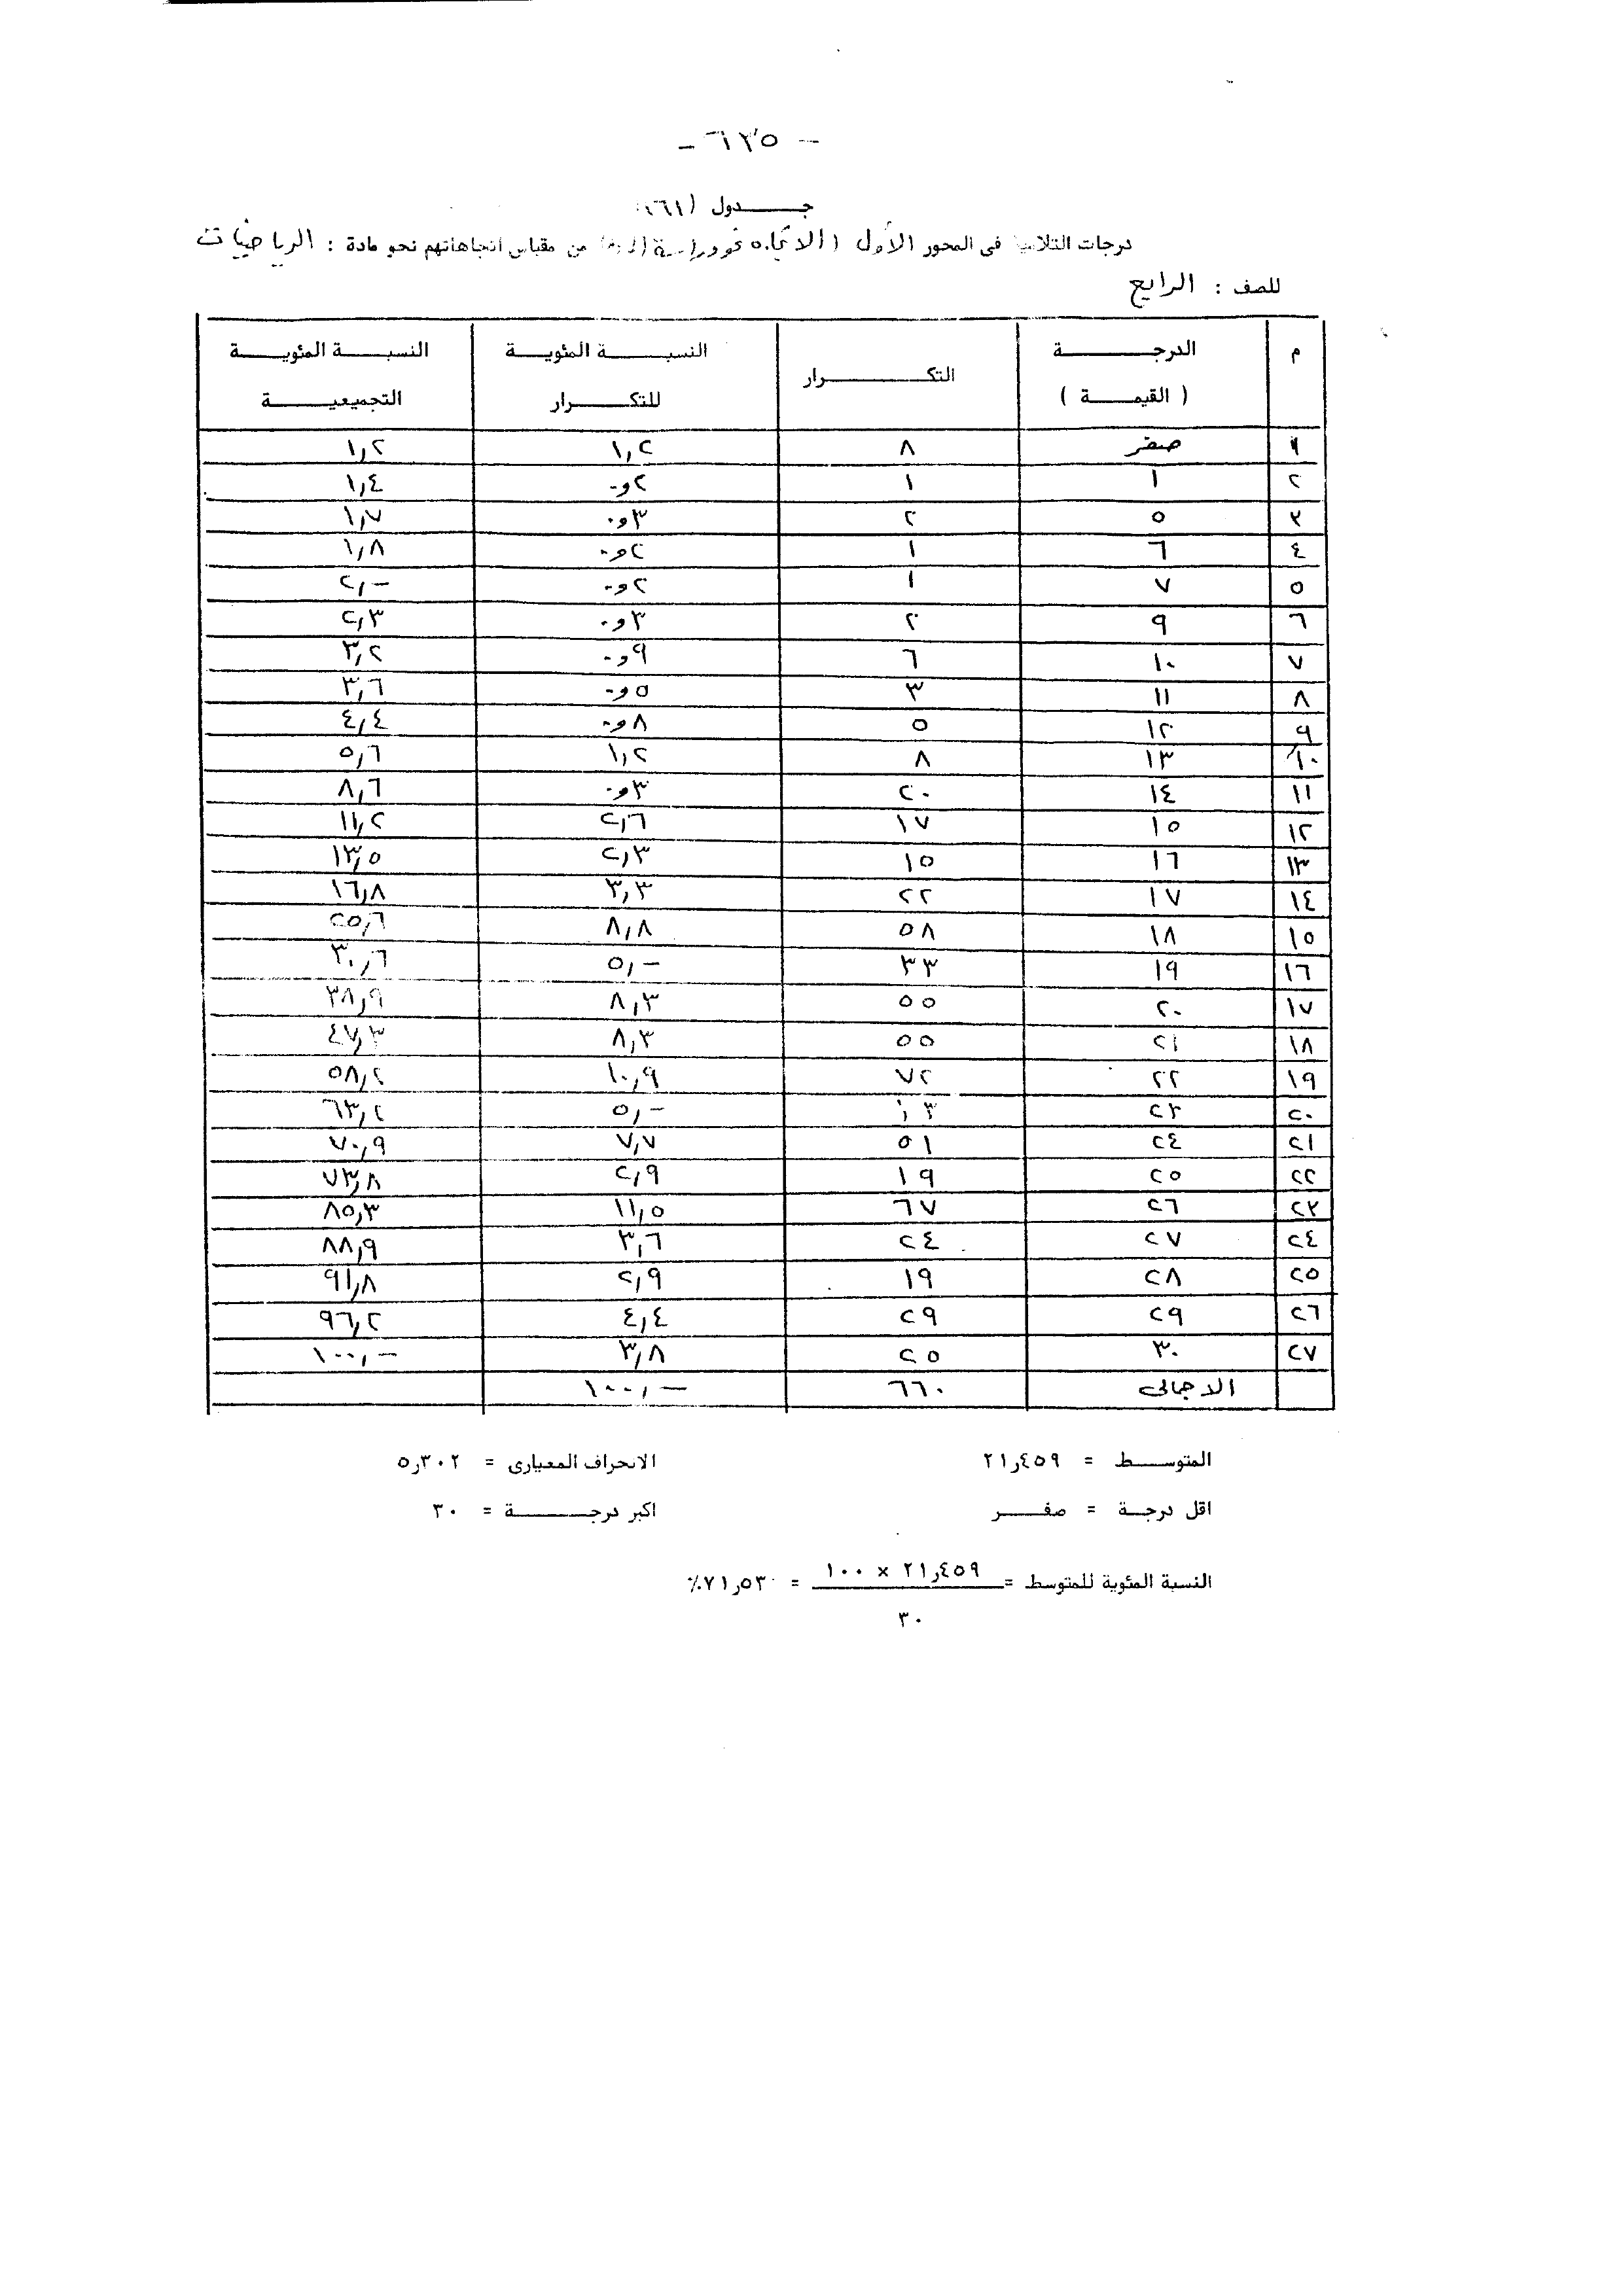 - ٦٣٥ -
جـــدول (١٦١)
درجات التلاميذ فى المحور الأول (الاتجاه نحو دراسة المادة) من مقياس اتجاهاتهم نحو مادة : الرياضيات
للصف : الرابع
م الدرجــة ( القيمــة ) التكــرار النسبــة المئويــة للتكــرار النسبــة المئويــة التجميعيــة
١ صفر ٨ ١,٢ ١,٢
٢ ١ ١ ٢و٠ ١,٤
٣ ٥ ٢ ٣و٠ ١,٧
٤ ٦ ١ ٢و٠ ١,٨
٥ ٧ ١ ٢و٠ ٢,-
٦ ٩ ٢ ٣و٠ ٢,٣
٧ ١٠ ٦ ٩و٠ ٣,٢
٨ ١١ ٣ ٥و٠ ٣,٦
٩ ١٢ ٥ ٨و٠ ٤,٤
١٠ ١٣ ٨ ١,٢ ٥,٦
١١ ١٤ ٢٠ ٣و٠ ٨,٦
١٢ ١٥ ١٧ ٢,٦ ١١,٢
١٣ ١٦ ١٥ ٢,٣ ١٣,٥
١٤ ١٧ ٢٢ ٣,٣ ١٦,٨
١٥ ١٨ ٥٨ ٨,٨ ٢٥,٦
١٦ ١٩ ٣٣ ٥,- ٣٠,٦
١٧ ٢٠ ٥٥ ٨,٣ ٣٨,٩
١٨ ٢١ ٥٥ ٨,٣ ٤٧,٣
١٩ ٢٢ ٧٢ ١٠,٩ ٥٨,٢
٢٠ ٢٣ ٥,- ٦٣,٢
٢١ ٢٤ ٥١ ٧,٧ ٧٠,٩
٢٢ ٢٥ ١٩ ٢,٩ ٧٣,٨
٢٣ ٢٦ ٦٧ ١١,٥ ٨٥,٣
٢٤ ٢٧ ٢٤ ٣,٦ ٨٨,٩
٢٥ ٢٨ ١٩ ٢,٩ ٩١,٨
٢٦ ٢٩ ٢٩ ٤,٤ ٩٦,٢
٢٧ ٣٠ ٢٥ ٣,٨ ١٠٠,-
الاجمالى ٦٦٠ ١٠٠,-
المتوســط = ٢١٫٤٥٩ الانحراف المعيارى = ٥٫٣٠٢
اقل درجــة = صفــر اكبر درجــــة = ٣٠
النسبة المئوية للمتوسط = ٢١٫٤٥٩ × ١٠٠ = ٧١٫٥٣٠٪
٣٠